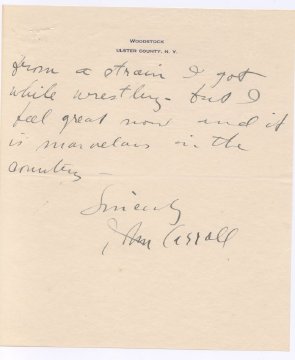 WOODSTOCK
ULSTER COUNTY, N. Y.
from a strain I got
while wrestling - but I
feel great now and it
is marvelous in the
country -
Sincerely
John Carroll